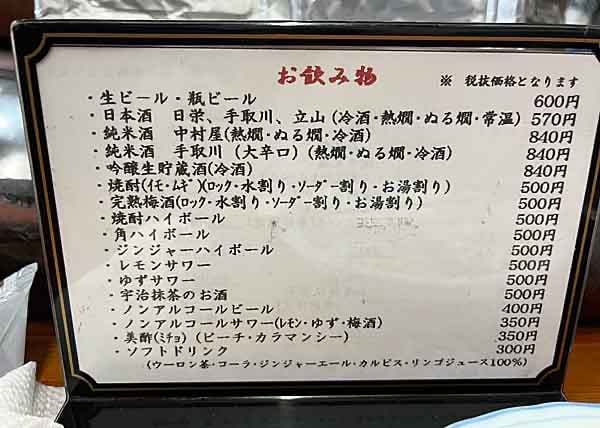 お飲み物
※ 税抜価格となります
・生ビール・瓶ビール 600円
・日本酒 日栄、手取川、立山(冷酒・熱燗・ぬる燗・常温) 570円
・純米酒 中村屋(熱燗・ぬる燗・冷酒) 840円
・純米酒 手取川(大辛口)(熱燗・ぬる燗・冷酒) 840円
・吟醸生貯蔵酒(冷酒) 840円
・焼酎(イモ・ムギ)(ロック・水割り・ソーダー割り・お湯割り) 500円
・完熟梅酒(ロック・水割り・ソーダー割り・お湯割り) 500円
・焼酎ハイボール 500円
・角ハイボール 500円
・ジンジャーハイボール 500円
・レモンサワー 500円
・ゆずサワー 500円
・宇治抹茶のお酒 500円
・ノンアルコールビール 400円
・ノンアルコールサワー(レモン・ゆず・梅酒) 350円
・美酢(ミチョ)(ピーチ・カラマンシー) 350円
・ソフトドリンク 300円
(ウーロン茶・コーラ・ジンジャーエール・カルピス・リンゴジュース100%)